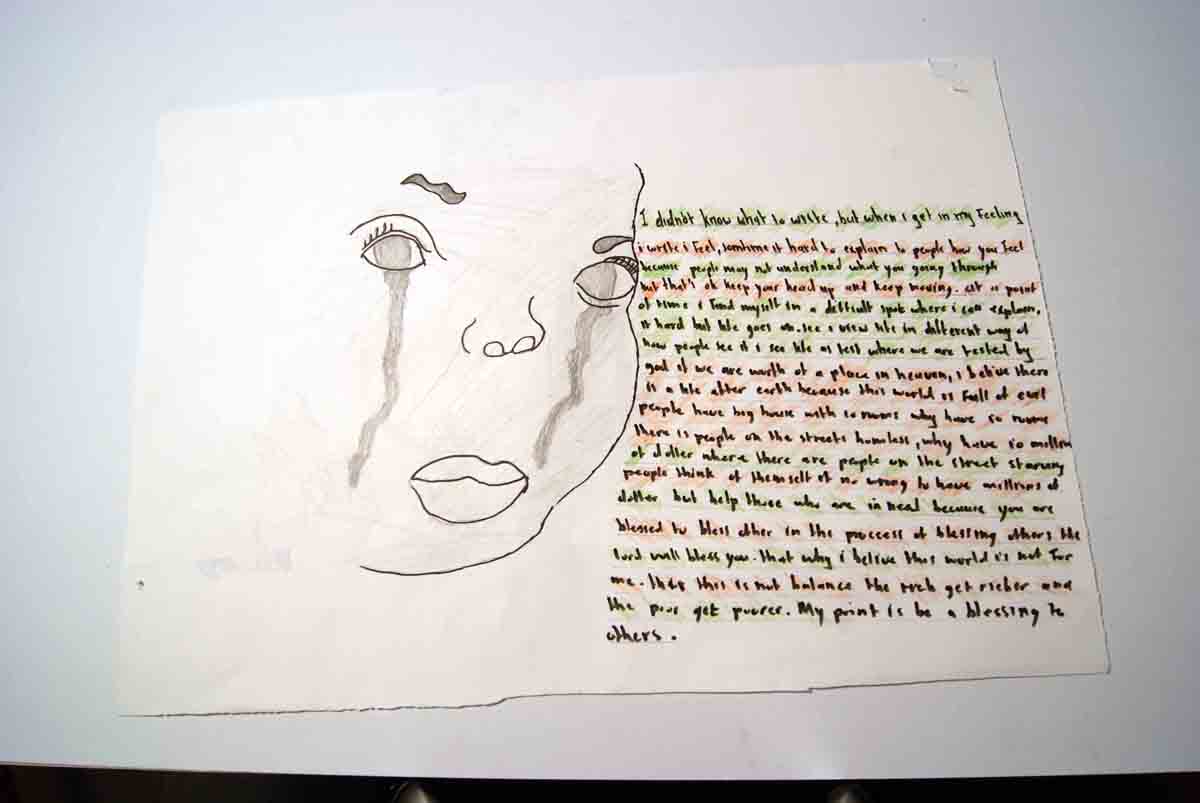 I didn't know what to write, but when i get in my Feeling
i write i Feel, somtime it hard to explain to people how you Feel
because people may not understand what you going through
but that's ok keep your head up and keep moving. at a point
of time i Find myself in a difficult spot where i can explain,
it hard but life goes on. see i view life in different way of
how people see it i see life as test where we are tested by
god if we are worth of a place in heaven, i belive there
is a life after earth because this world is Full of evil
people have big house with 10 rooms why have 10 rooms
there is people on the streets homless, why have 10 million
of doller where there are people on the street starving
people think of themself it no wrong to have millions of
doller but help those who are in need because you are
blessed to bless other in the proccess of blessing others the
lord will bless you. that why i belive this world is not For
me. this is not balance the rich get richer and
the poor get poorer. My point is be a blessing to
others.